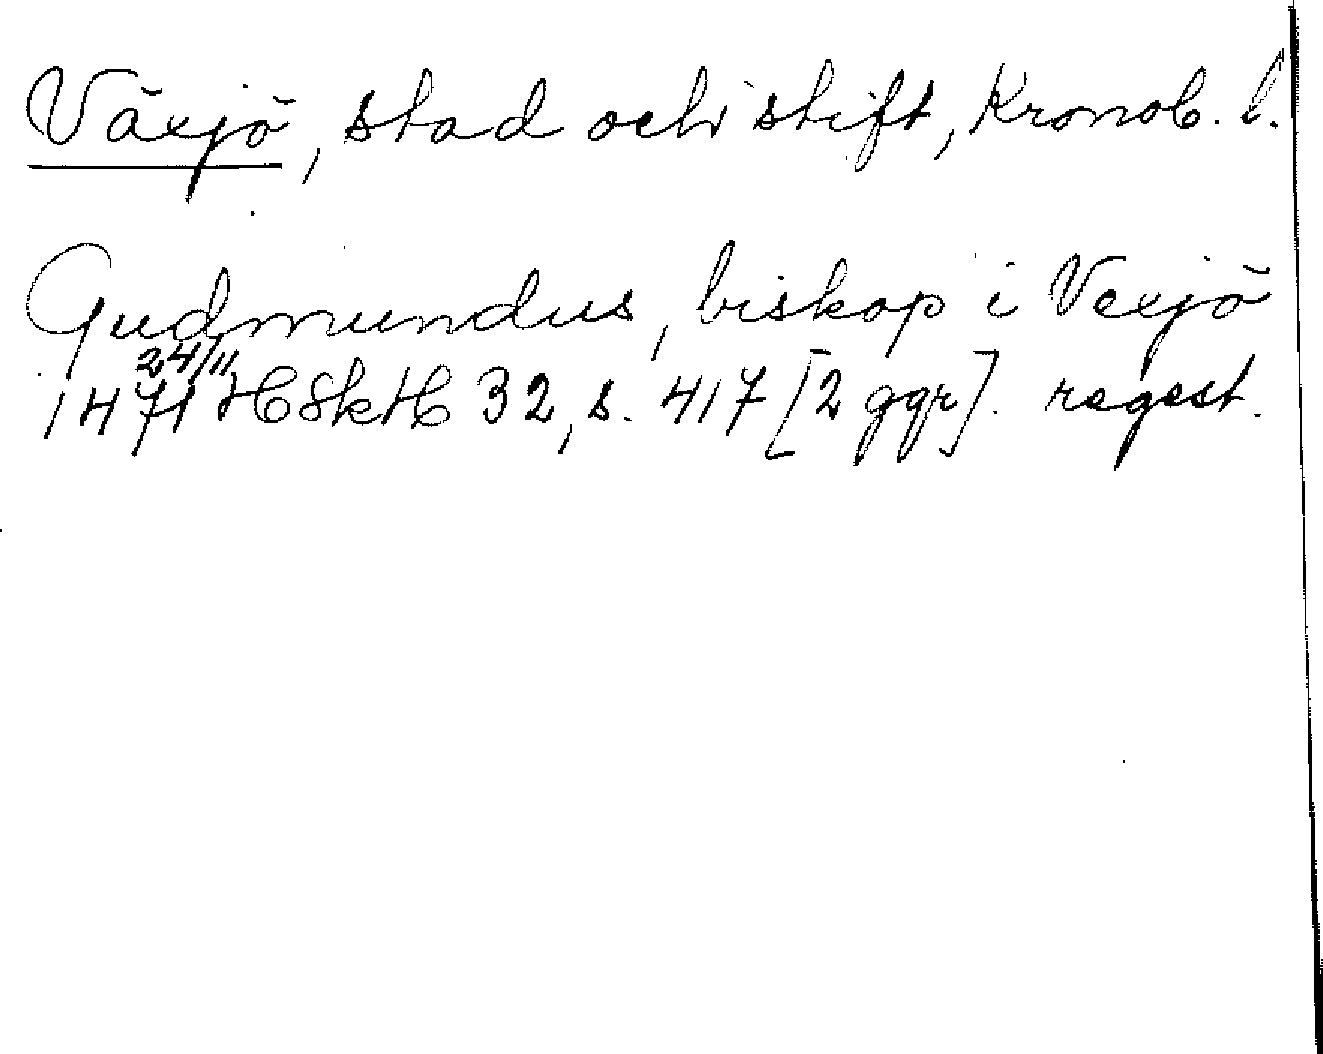 Växjö, stad och stift, Kronob. l.
Gudmundus, biskop i Vexjö
24/11
1471 HSkH 32, s. 417 [2 ggr]. regest.